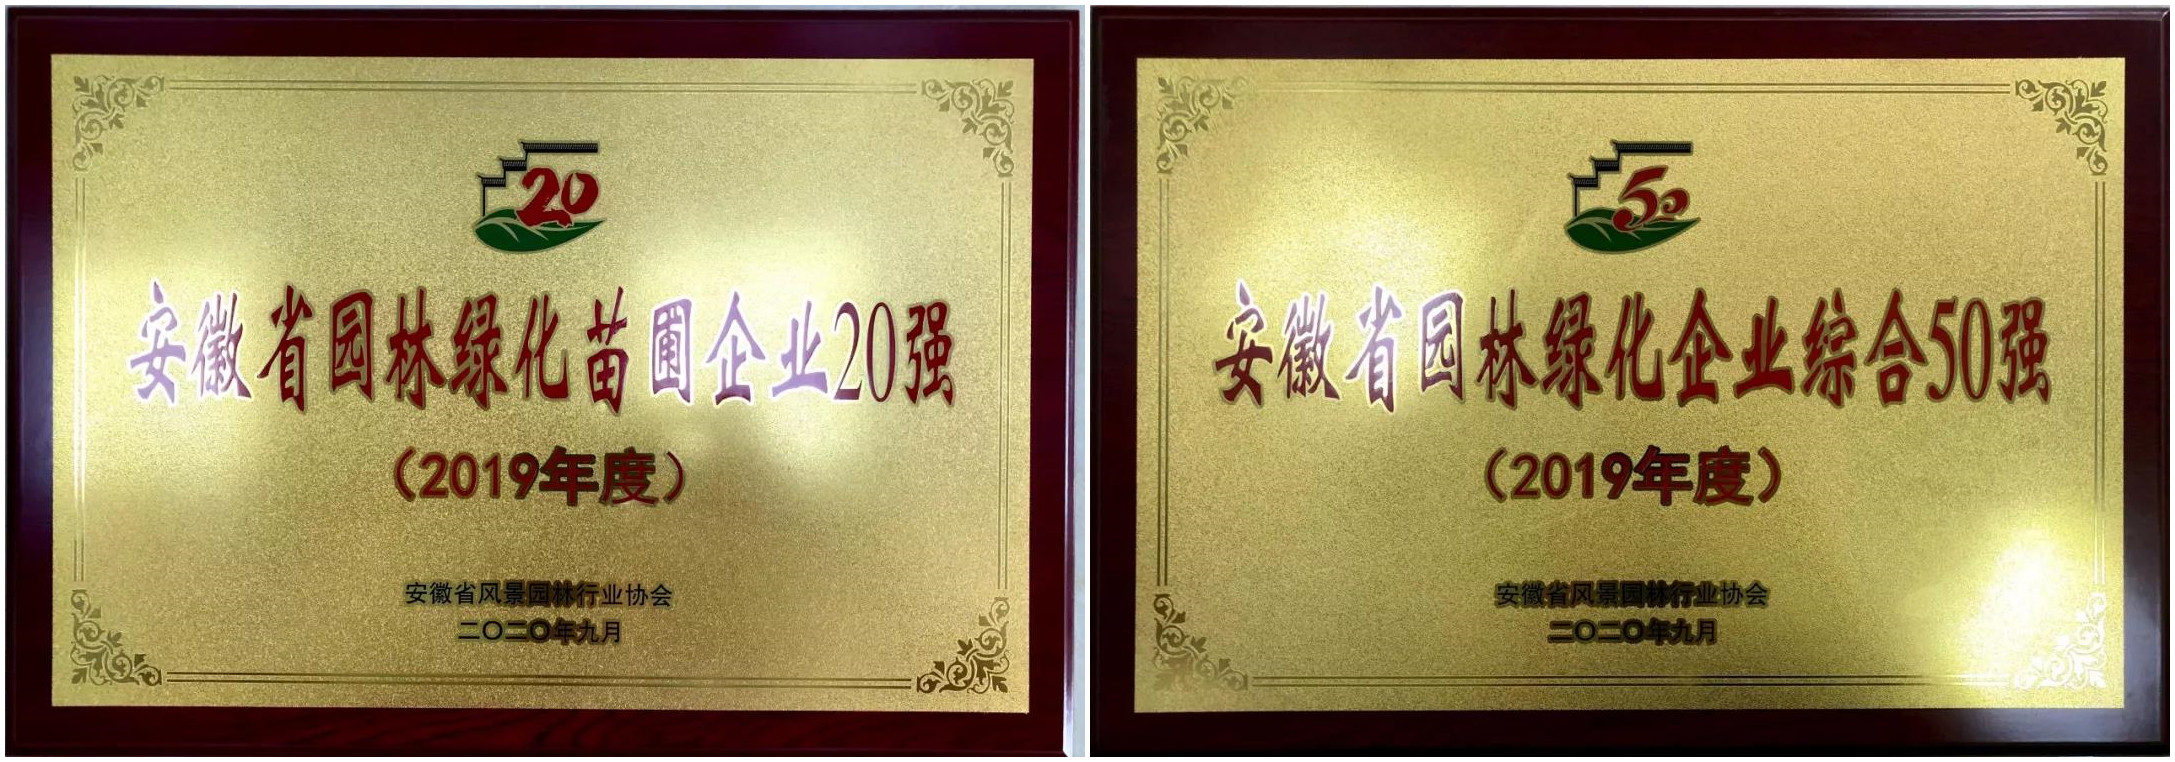 20
安徽省园林绿化苗圃企业20强
（2019年度）
安徽省风景园林行业协会
二〇二〇年九月
50
安徽省园林绿化企业综合50强
（2019年度）
安徽省风景园林行业协会
二〇二〇年九月